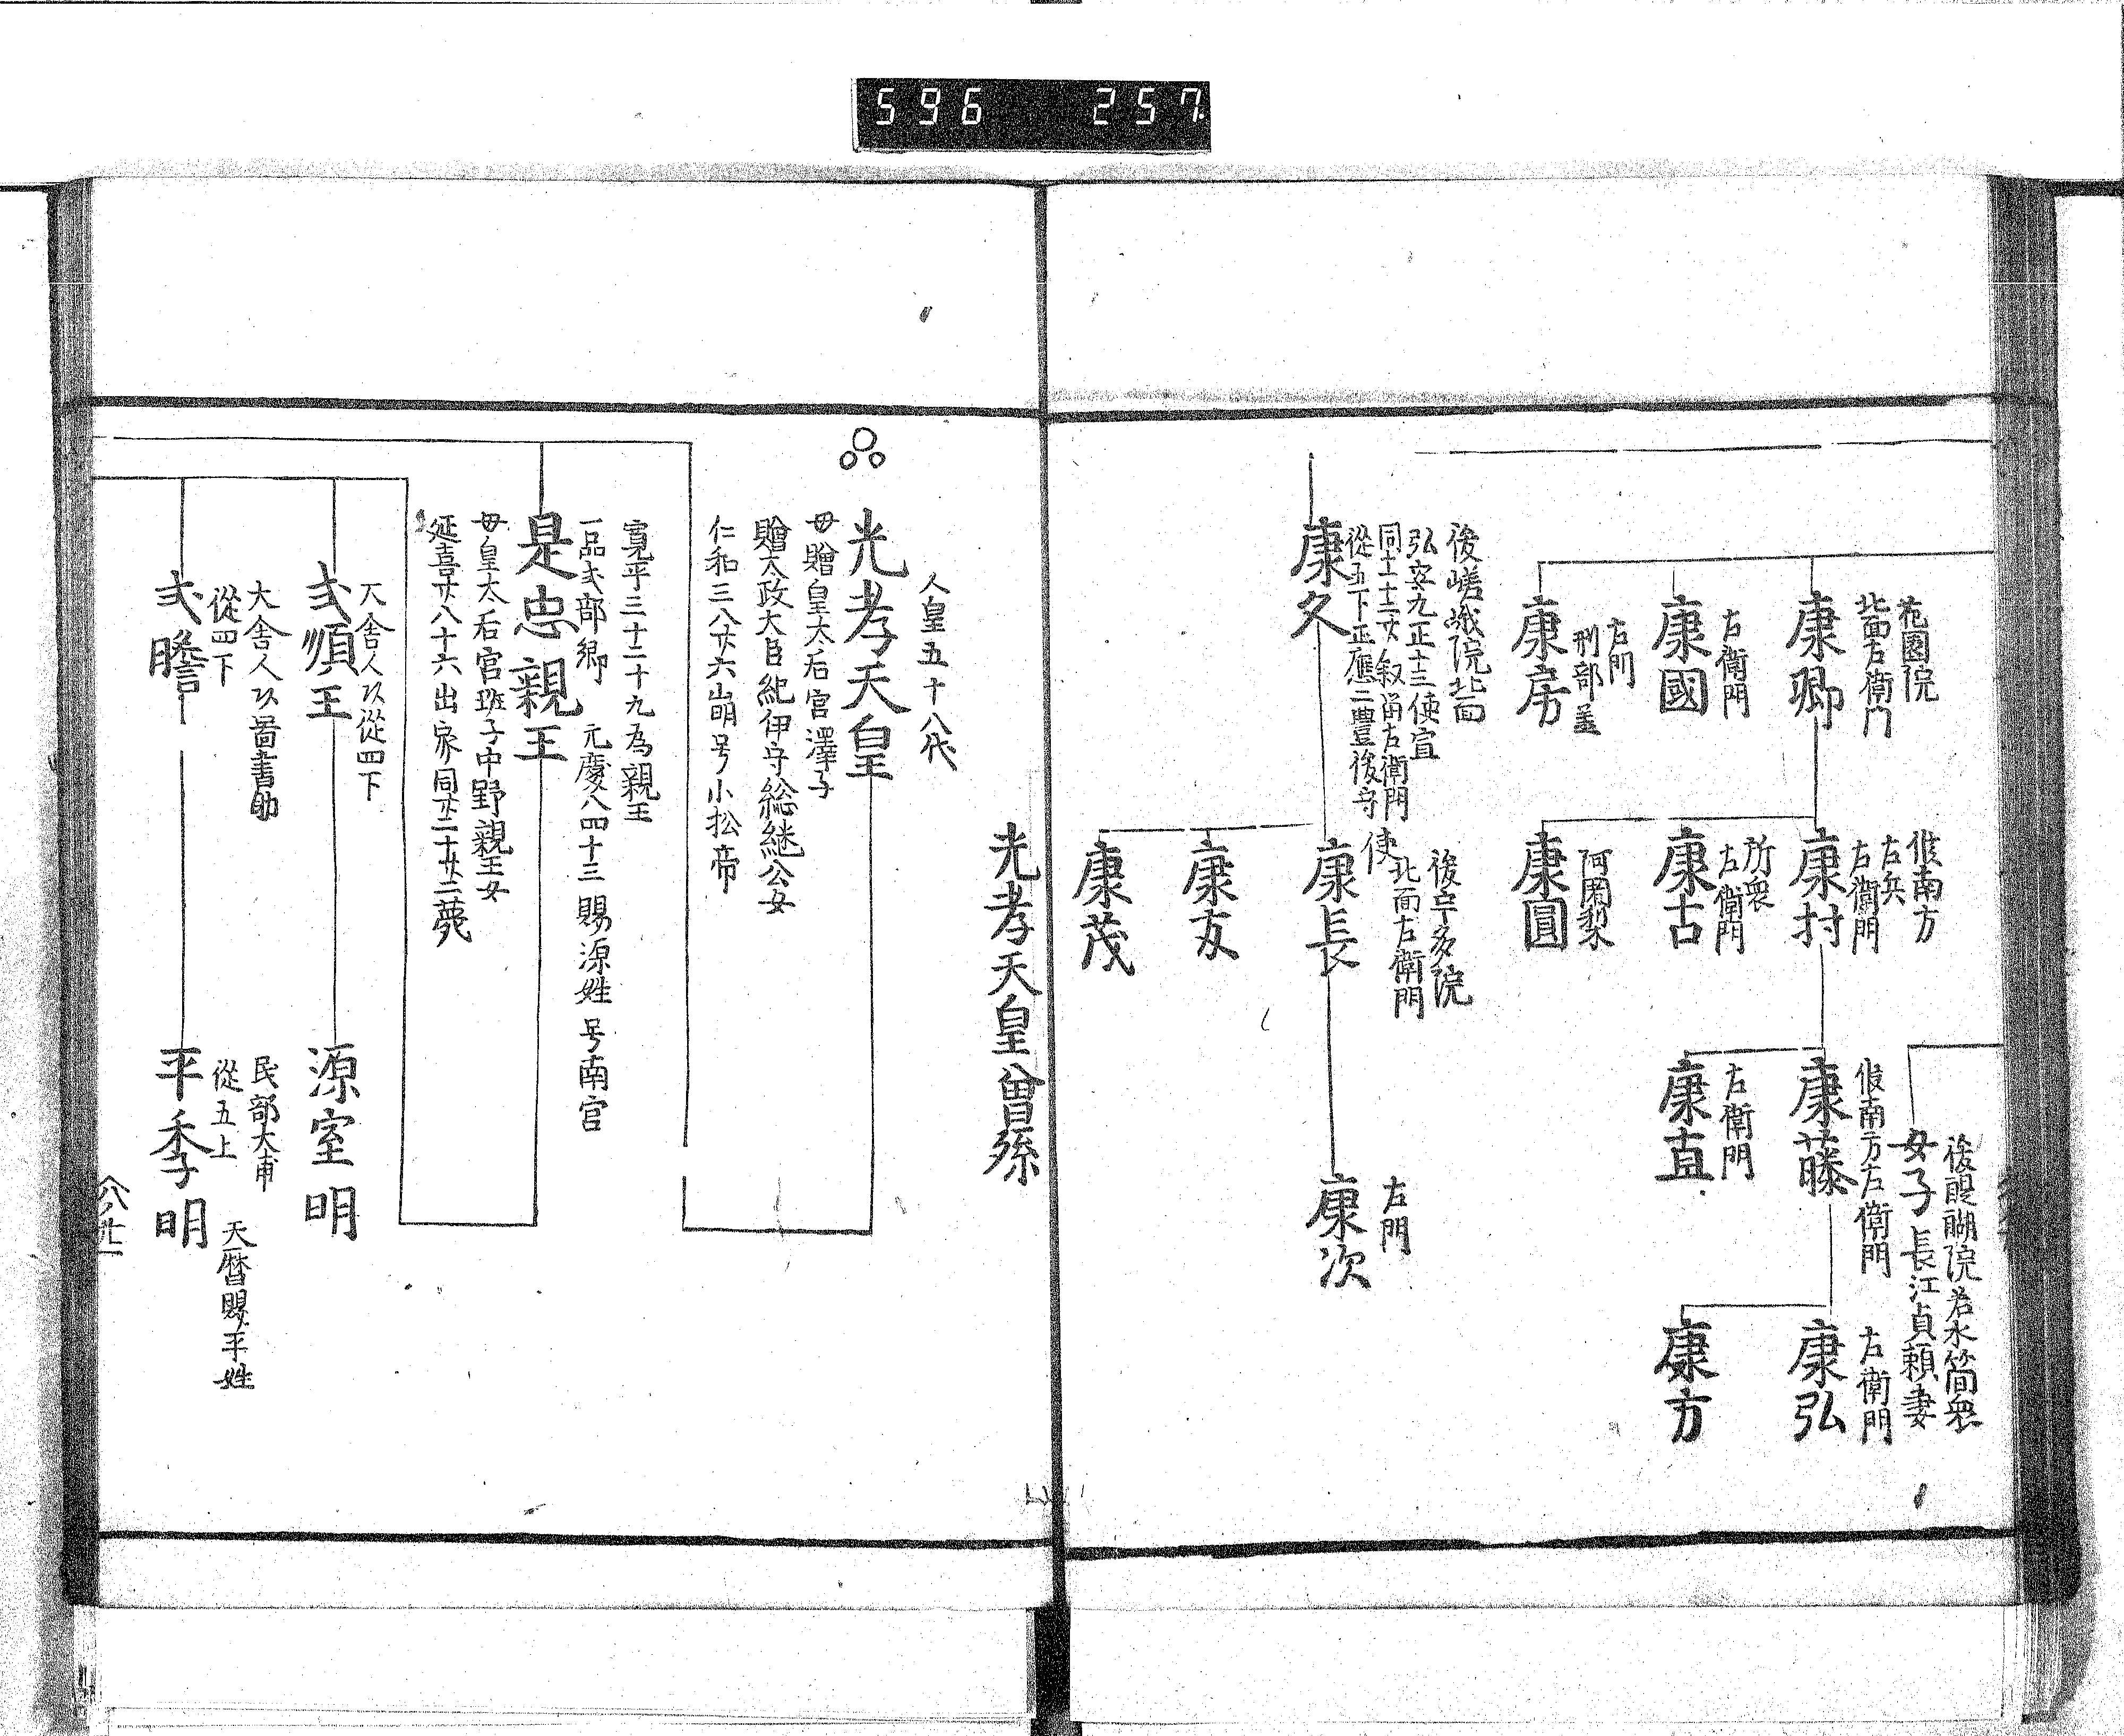 596 257
後醍醐院若水簡衆
女子 長江貞頼妻
花園院
北面右衛門
康卿
右衛門
康國
右門
刑部丞
康房
候南方
右兵
右衛門
康村
所衆
左衛門
康古
阿闍梨
康圓
候南方左衛門
康藤
右衛門
康直
右衛門
康弘
康方
後嵯峨院北面
弘安九正十三使宣
從五下正應二豊後守
康久
後宇多院
北面右衛門
使
康長
康友
康茂
右門
康次
光孝天皇曽孫
人皇五十八代
光孝天皇
母贈皇太后宮澤子
贈太政大臣紀伊守総継公女
仁和三八廿六崩号小松帝
寛平三十二十九為親王
一品式部卿 元慶八四十三賜源姓 号南宮
是忠親王
母皇太后宮班子中野親王女
延喜廿八十六出家同廿二十廿二薨
大舎人以從四下
式順王
源室明
大舎人以啚書助
從四下
式瞻〻
民部大甫
從五上
平季明
天暦賜平姓